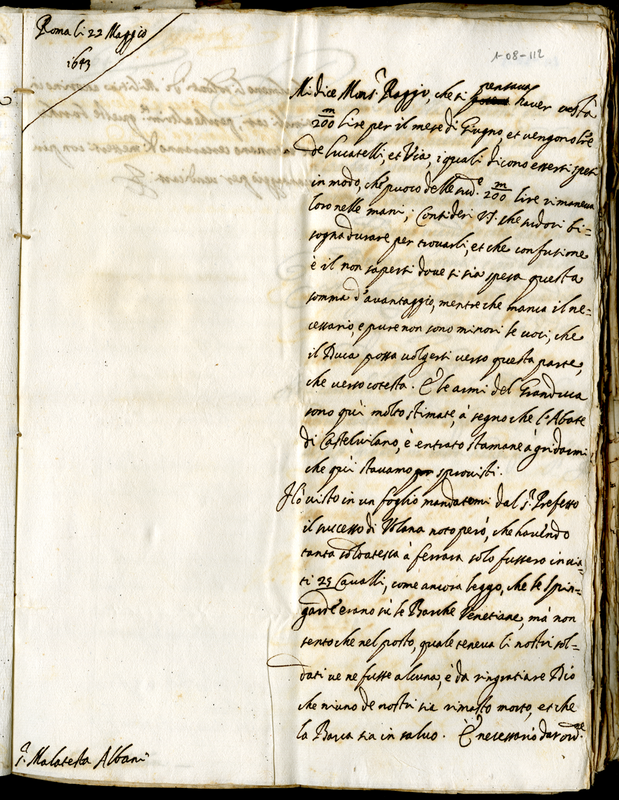 Roma li 22 Maggio
1643
1-08-112
Mi dice Mons.r Raggio, che si pensava haver costà
m/200 lire per il mese di Giugno et vengono l're
de Lucatelli, et Via, i quali dicono essersi spesi
in modo, che puoco delle sud.e m/200 lire rimaneva
loro nelle mani; Consideri V.S. che sudori bi=
sogna durare per trovarli, et che confusione
è il non sapersi dove si sia spesa questa
somma d'avantaggio, mentre che manca il ne=
cessario, e pure non sono minori le voci, che
il Duca possa volgersi verso questa parte,
che verso cotesta. E le armi del Granduca
sono quì molto stimate, à segno che l'Abate
di Castelvilano, è entrato stamane à gridarmi
che quì stavamo sprovisti.
Hò visto in un foglio mandatomi dal S.r Prefetto
il successo di Volana noto però, che havendo
tanta soldatesca à ferrara solo fussero invia=
ti 25 Cavalli, come ancora leggo, che le Spin=
garde erano sù le Barche Venetiane, mà non
sento che nel posto, quale teneva li nostri sol=
dati ve ne fusse alcuna, è da ringratiare Dio
che niuno de nostri sia rimasto morto, et che
la Barca sia in salvo. È necessario dar ord.e
S.r Malatesta Albani